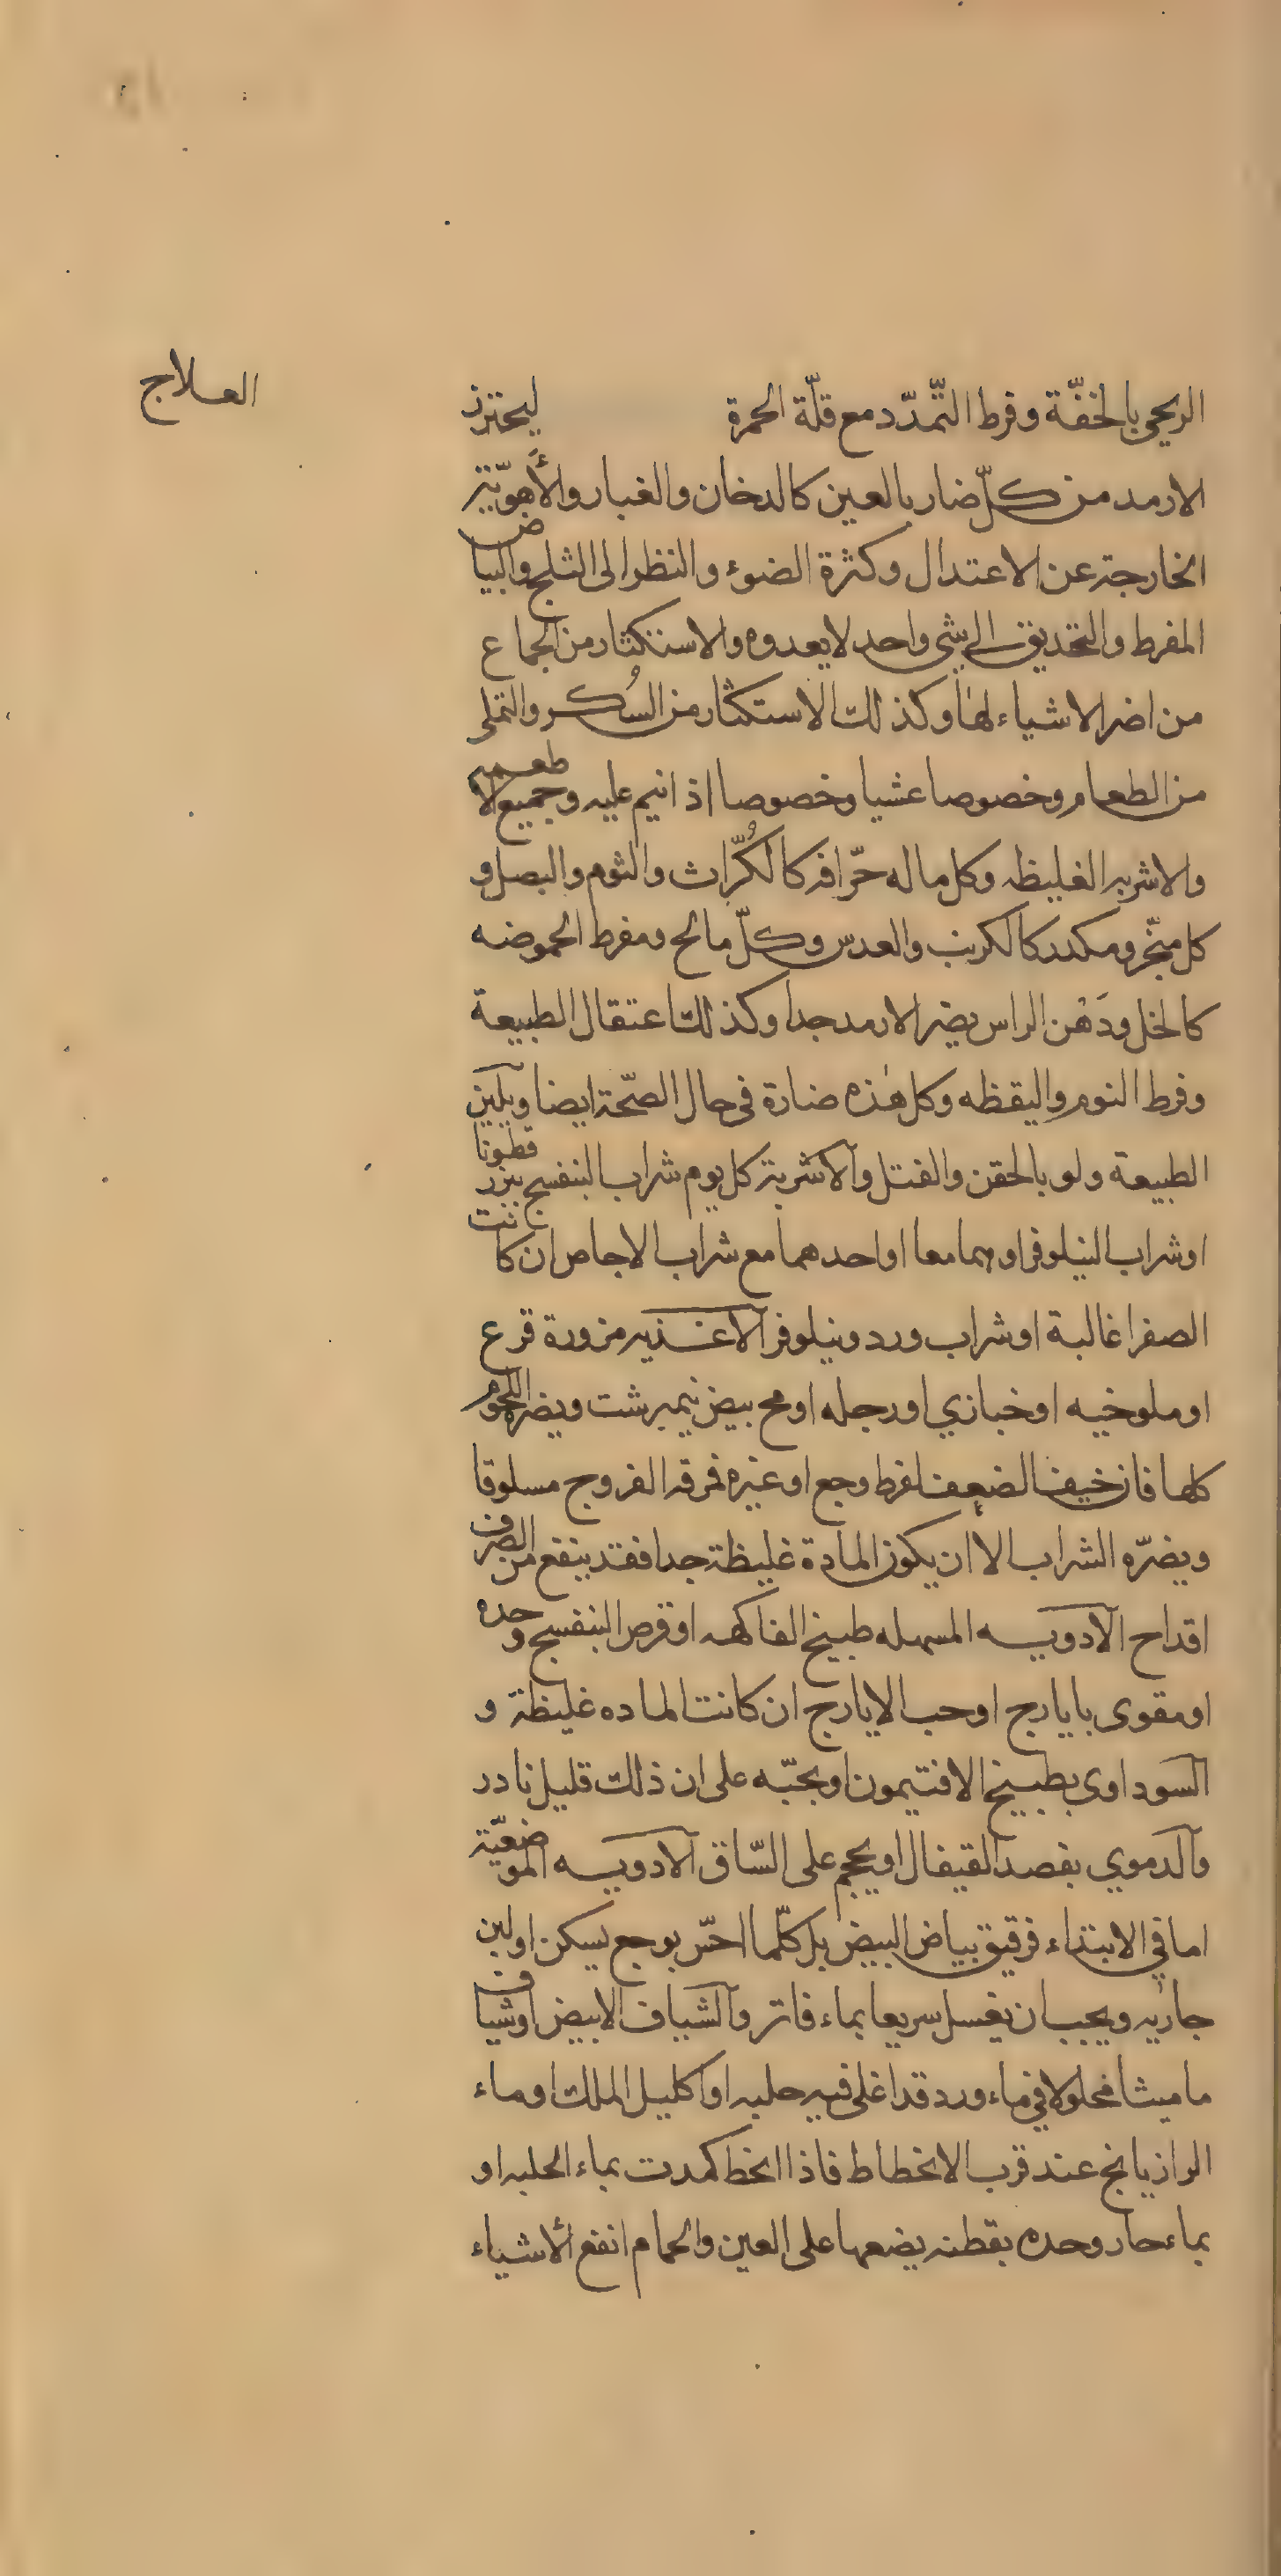 العلاج
الريحي بالخفّة وفرط التّمدّد مع قلّة الحمرة ليحترز
الارمد من كلّ ضار بالعين كالدخان والغبار والأهويّة
الخارجة عن الاعتدال وكثرة الضوء والنظر الى الثلج والبياض
المفرط والتحديق الى شي واحد لا يعدوه والاستكثار من الجماع
من اضر الاشياء لها وكذلك الاستكثار من السُكر والتملى
من الطعام وخصوصا عشيا وخصوصا اذا نيم عليه وجميع الاطعمه
والاشربه الغليظه وكل ما له حرّافه كالكُرّاث والثوم والبصل و
كل مبخّر ومكدر كالكرنب والعدس وكلّ مالح ومفرط الحموضه
كالخل ودَهْن الراس يضر الارمد جدا وكذلك اعتقال الطبيعة
وفرط النوم واليقظه وكل هذه ضارة في حال الصّحة ايضا ويليّن
الطبيعة ولو بالحقن والفتل والاشربة كل يوم شراب البنفسج ببزر قطونا
او شراب النيلوفر او هما معا او احدهما مع شراب الاجاص ان كانت
الصفرا غالبة او شراب ورد ونيلوفر الاغذيه مزورة قرع
او ملوخيه او خبازي او رجله او مح بيض نيمبرشت ويضره اللحوم
كلها فان خيف الضعف لفرط وجع او غيره فمرقه الفروج مسلوقا
ويضرّه الشراب الا ان يكون المادة غليظة جدا فقد ينفع من الصرف
اقداح الادويه المسهله طبيخ الفاكهه او قرص البنفسج وحده
او مقوى بايارج او حب الايارج ان كانت الماده غليظة و
السوداوي بطبيخ الافتيمون او بحبّه على ان ذلك قليل نادر
والدموي بفصد القيفال او يحجم على السّاق الادويه الموضعيّة
اما في الابتداء فرقيق بياض البيض بل كلّما احسّ بوجع يسكن او لبن
جاريه ويجب ان يغسل سريعا بماء فاتر والشياف الابيض او شياف
ماميثا محلولا في ماء ورد قد اغلى فيه حلبه او اكليل الملك او ماء
الرازيانج عند قرب الانحطاط فاذا انحط كمدت بماء الحلبه او
بماء حار وحده بقطنه يضعها على العين والحمام انفع الأشياء